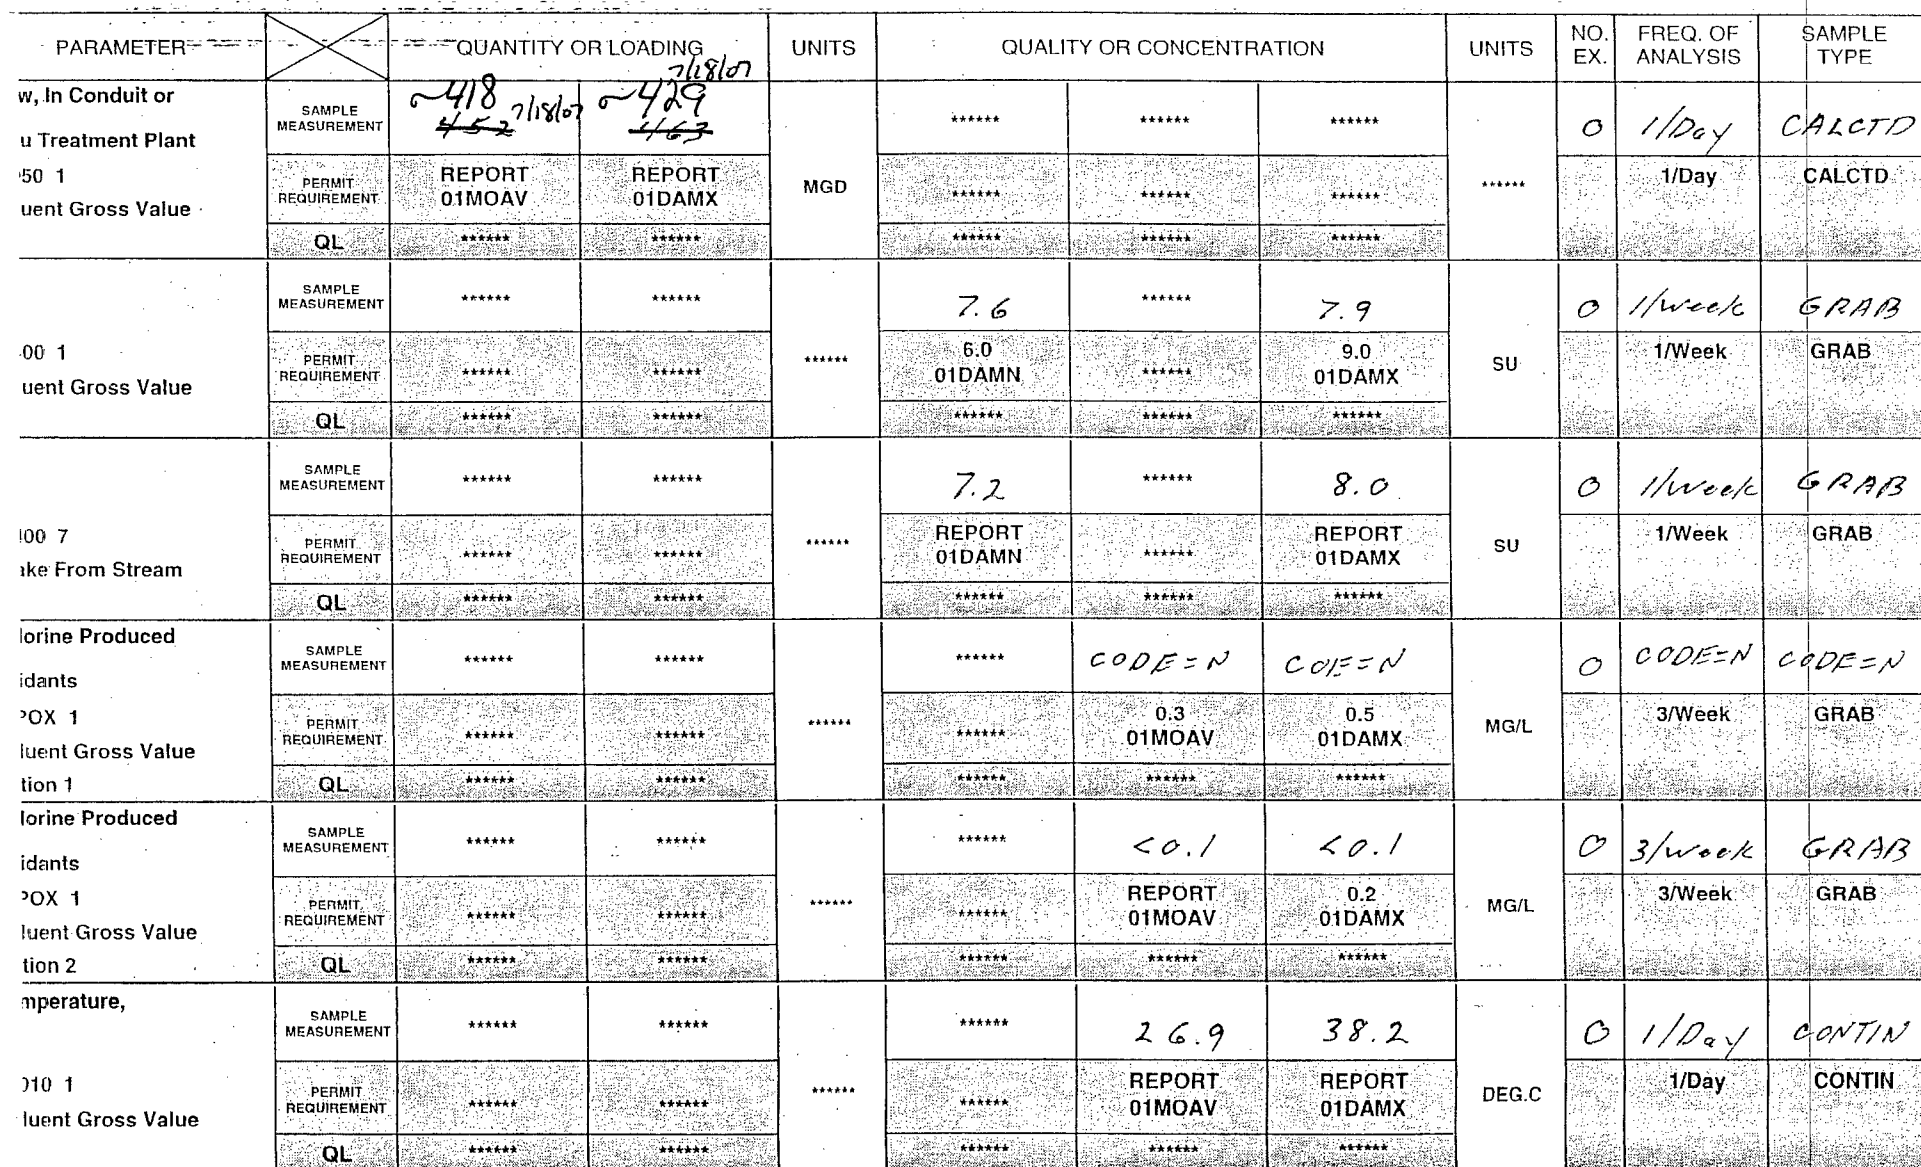 PARAMETER QUANTITY OR LOADING UNITS QUALITY OR CONCENTRATION UNITS NO. EX. FREQ. OF ANALYSIS SAMPLE TYPE
7/18/07
w, In Conduit or
u Treatment Plant
50 1
uent Gross Value
SAMPLE MEASUREMENT ~418 7/18/07 ~429 ****** ****** ****** 0 1/Day CALCTD
452 463
PERMIT REQUIREMENT REPORT 01MOAV REPORT 01DAMX MGD ****** ****** ****** ****** 1/Day CALCTD
QL ****** ****** ****** ****** ******
00 1
uent Gross Value
SAMPLE MEASUREMENT ****** ****** 7.6 ****** 7.9 0 1/week GRAB
PERMIT REQUIREMENT ****** ****** ****** 6.0 01DAMN ****** 9.0 01DAMX SU 1/Week GRAB
QL ****** ****** ****** ****** ******
00 7
ake From Stream
SAMPLE MEASUREMENT ****** ****** 7.2 ****** 8.0 0 1/week GRAB
PERMIT REQUIREMENT ****** ****** ****** REPORT 01DAMN ****** REPORT 01DAMX SU 1/Week GRAB
QL ****** ****** ****** ****** ******
lorine Produced
idants
POX 1
luent Gross Value
tion 1
SAMPLE MEASUREMENT ****** ****** ****** CODE=N COE=N 0 CODE=N CODE=N
PERMIT REQUIREMENT ****** ****** ****** ****** 0.3 01MOAV 0.5 01DAMX MG/L 3/Week GRAB
QL ****** ****** ****** ****** ******
lorine Produced
idants
POX 1
luent Gross Value
tion 2
SAMPLE MEASUREMENT ****** ****** ****** <0.1 <0.1 0 3/week GRAB
PERMIT REQUIREMENT ****** ****** ****** ****** REPORT 01MOAV 0.2 01DAMX MG/L 3/Week GRAB
QL ****** ****** ****** ****** ******
mperature,
010 1
luent Gross Value
SAMPLE MEASUREMENT ****** ****** ****** 26.9 38.2 0 1/Day CONTIN
PERMIT REQUIREMENT ****** ****** ****** ****** REPORT 01MOAV REPORT 01DAMX DEG.C 1/Day CONTIN
QL ****** ****** ****** ****** ******